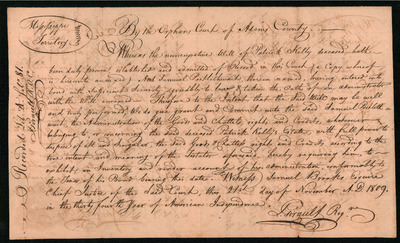 Mississippi
Territory
By the Orphans Court of Adams County
Whereas the nuncupative Will of Patrick Kelly deceased hath
been duly proven established and admitted of Record in this Court (a Copy whereof
is hereunto annexed) And Samuel therein named, having entered into
bond with sufficient Security and taken the Oath of an administrator
with the Will annexed Therefore to the Intent that the said Will may be well
and truly performed, We do grant and Commit unto the said Samuel
the administration of the Goods and Chattels, rights and Credits, whatsoever
belonging to, or concerning the said deceased Patrick Kelly's Estate, with full power to
dispose of all and singular, the said Goods Chattels rights and Credits, according to the
true intent and meaning of the Statutes aforesaid hereby requiring him to
exhibit, an Inventory and render account of his administration, conformably to
the Tenor of his Bond bearing this date. Witness Samuel Brooks Esquire
Chief Justice of the said Court, this day of November A.D 1809.
in the thirty fourth Year of American Independence.
Reg
Recorded